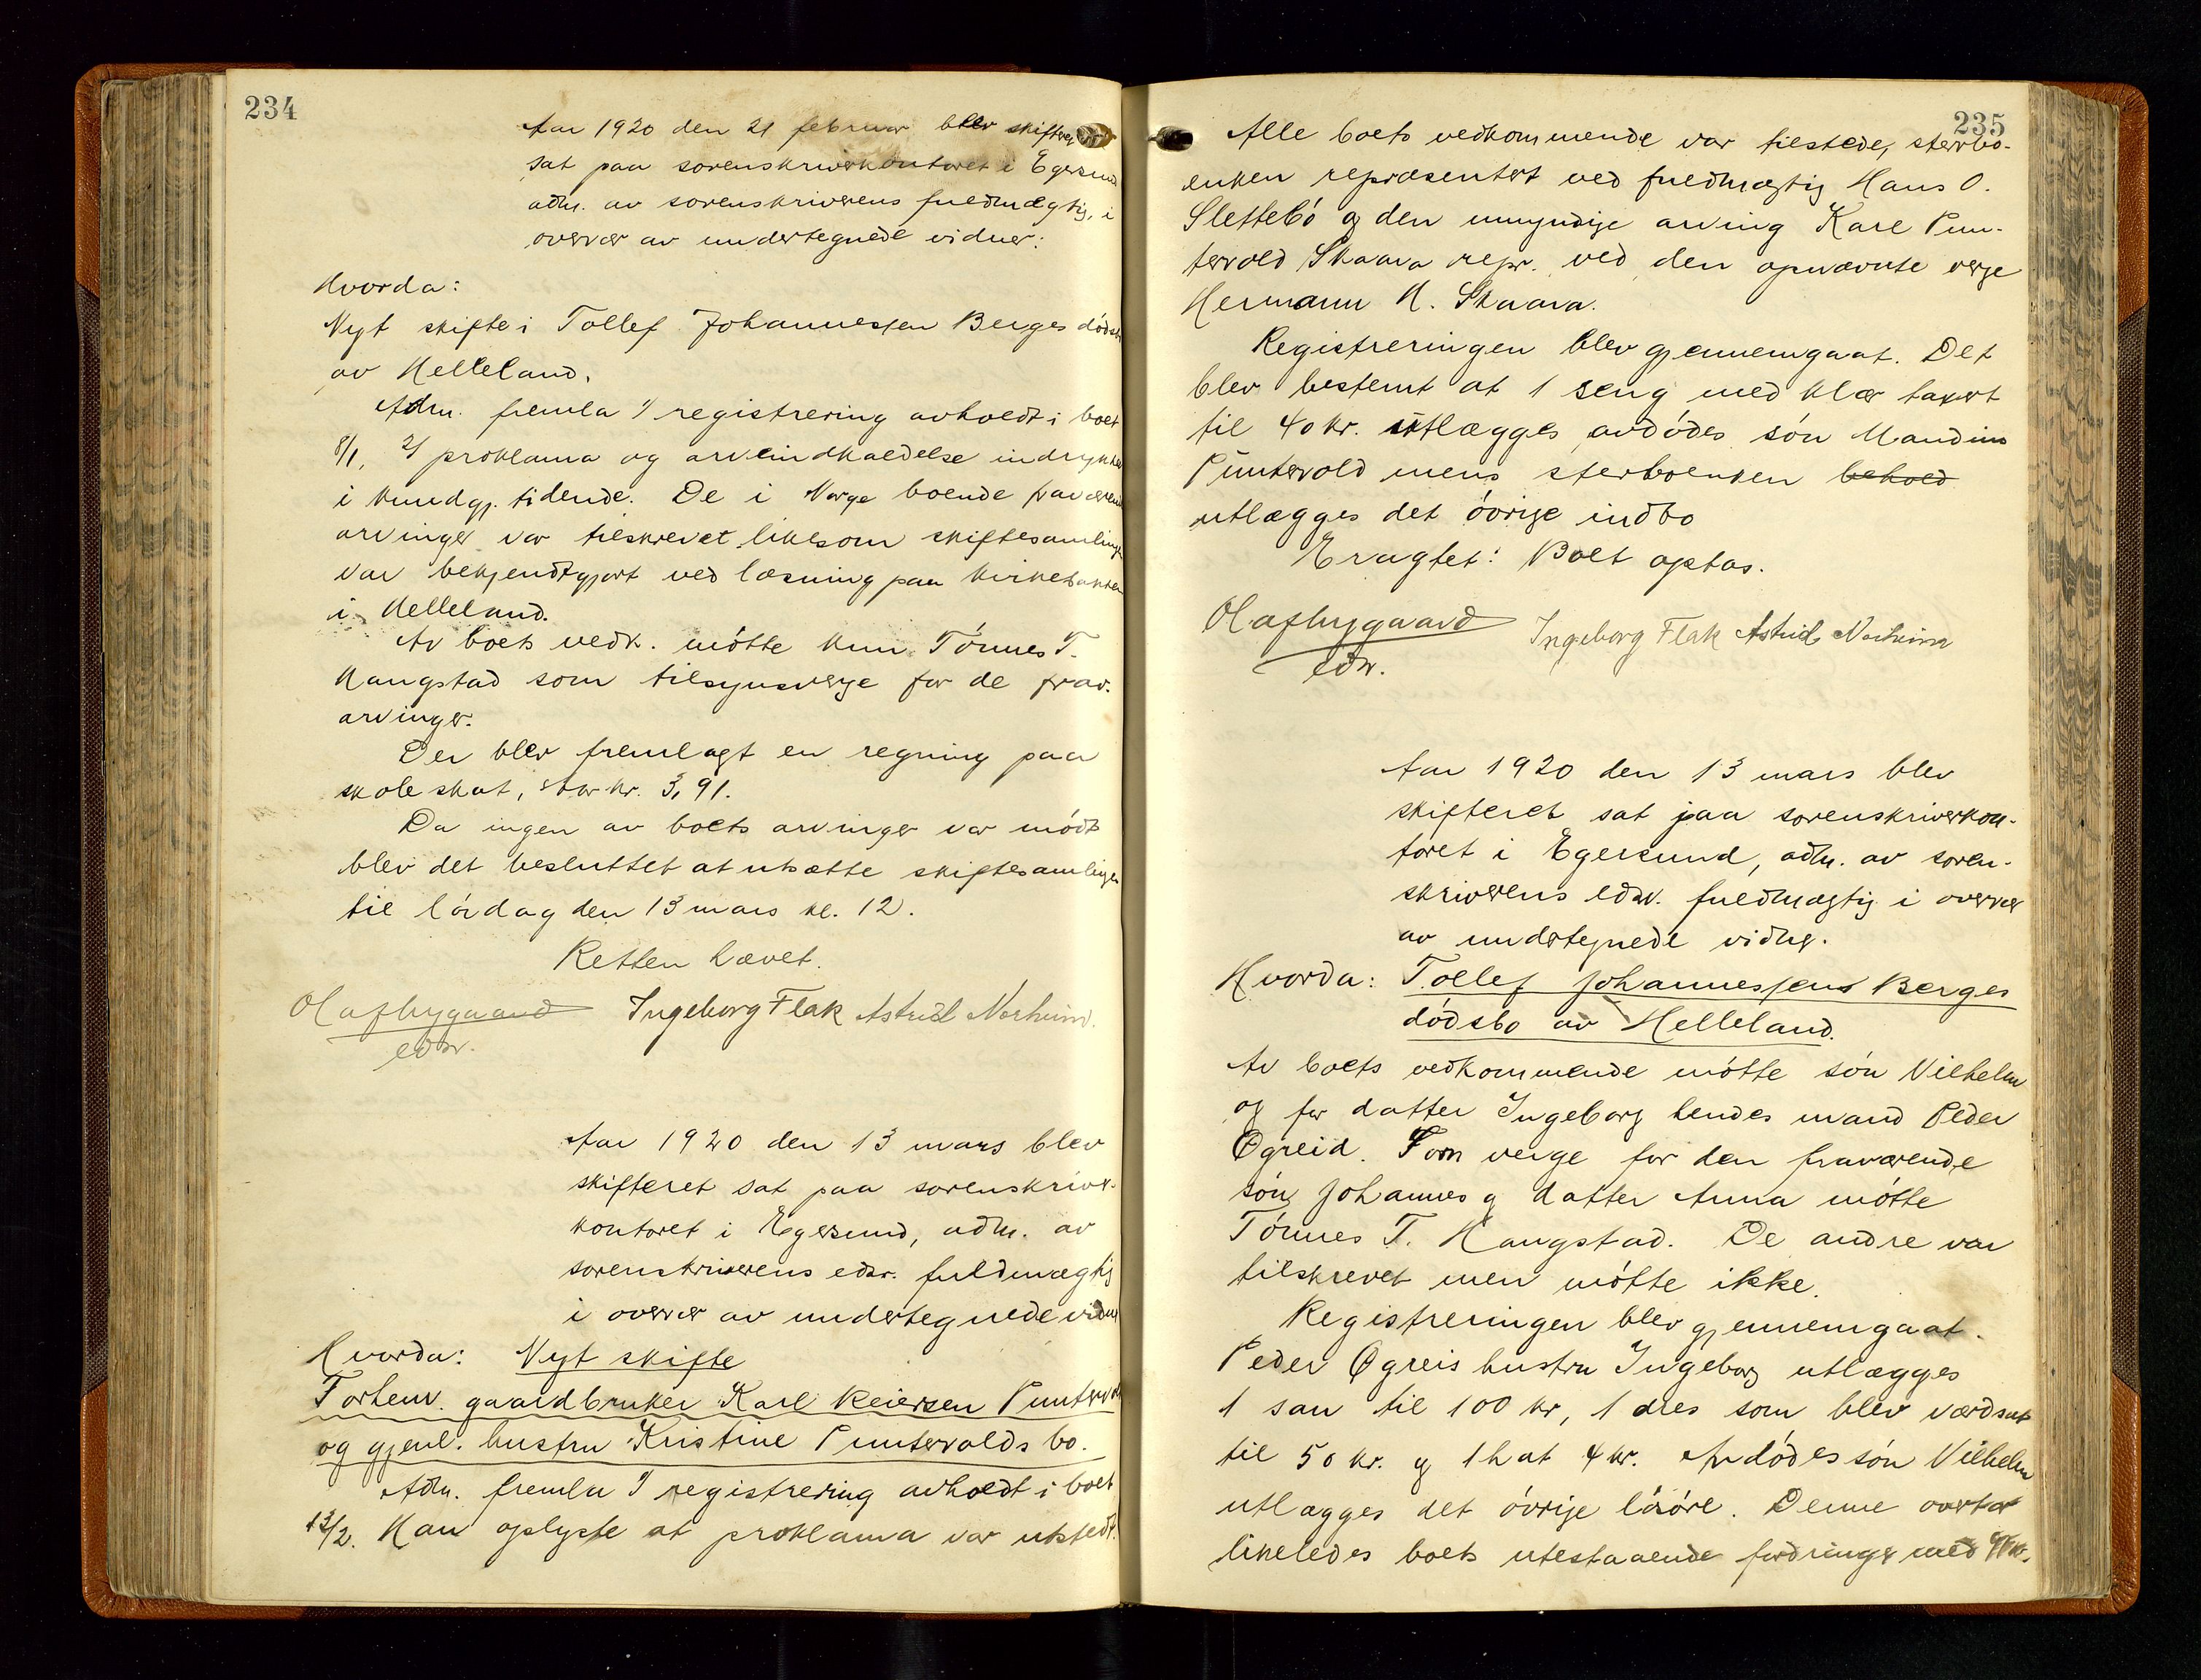 234
Aar 1920 den 21 februar blev skifteret
sat paa sorenskriverkontoret i Egersund
adm. av sorenskriverens fuldmægtig, i
overvær av undertegnede vidner:
Hvorda:
Nyt skifte i Tollef Johannessen Berges dødsbo
av Helleland.
Adm. fremla 1/ registrering avholdt i boet
8/1, 2/ proklama og arveindkaldelse indrykket
i kundgj. tidende. De i Norge boende fraværende
arvinger var tilskrevet likesom skiftesamlingen
var bekjendtgjort ved læsning paa kirkebakken
i Helleland.
Av boets vedk. møtte kun Tønnes T.
Haugstad som tilsynsverge for de frav.
arvinger.
Der blev fremlagt en regning paa
skoleskat, stor kr. 3,91.
Da ingen av boets arvinger var mødt
blev det besluttet at utsætte skiftesamlingen
til lørdag den 13 mars kl. 12.
Retten hævet.
Olaf Nygaard Ingeborg Flak Astrid Norheim.
edsv.
Aar 1920 den 13 mars blev
skifteret sat paa sorenskriver-
kontoret i Egersund, adm. av
sorenskriverens edsv. fuldmægtig
i overvær av undertegnede vidner
Hvorda: Nyt skifte
Forhenv. gaardbruker Karl Reiersen Puntervold
og gjenl. hustru Kristine Puntervolds bo.
Adm. fremla 1/ registrering avholdt i boet
13/2. Han oplyste at proklama var utstedt.
235
Alle boets vedkommende var tilstede, stervbo-
enken repræsentert ved fuldmægtig Hans O.
Slettebø og den umyndige arving Karl Pun-
tervold Skaara repr. ved den opnævnte verge
Hermann H. Skaara.
Registreringen blev gjennemgaat. Det
blev bestemt at 1 seng med klær taxert
til 40 kr. utlægges avdødes søn Mandius
Puntervold mens stervboenken behold
utlægges det øvrige indbo
Eragtet: Boet optas.
Olaf Nygaard Ingeborg Flak Astrid Norheim
edsv.
Aar 1920 den 13 mars blev
skifteret sat paa sorenskriverkon-
toret i Egersund, adm. av soren-
skriverens edsv. fuldmægtig i overvær
av undertegnede vidner.
Hvorda: Tollef Johannessens Berges
dødsbo av Helleland.
Av boets vedkommende møtte søn Vilhelm
og for datter Ingeborg hendes mand Peder
Øgreid. Som verge for den fraværende
søn Johannes og datter Anna møtte
Tønnes T. Haugstad. De andre var
tilskrevet men møtte ikke.
Registreringen blev gjennemgaat.
Peder Øgreis hustru Ingeborg utlægges
1 sau til 100 kr, 1 dres som blev værdsat
til 50 kr. og 1 hat 4 kr. Avdødes søn Vilhelm
utlægges det øvrige løsøre. Denne overtar
likeledes boets utestaaende fordringer med